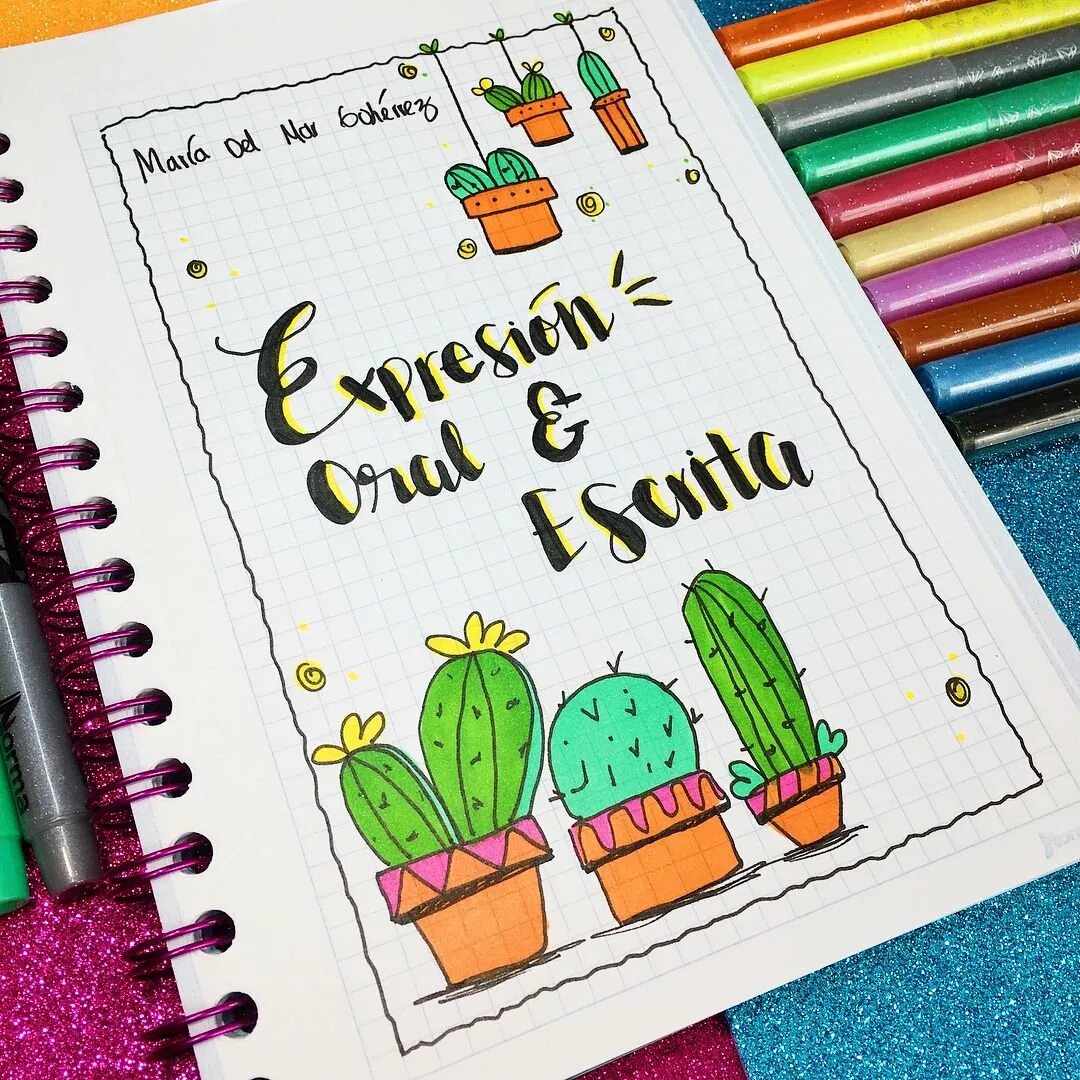 María Del Mar Gutiérrez
Expresión
Oral &
Escrita
Norma